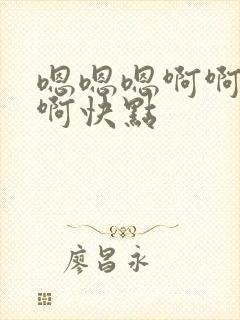 嗯嗯嗯啊啊
啊快點
廖昌永